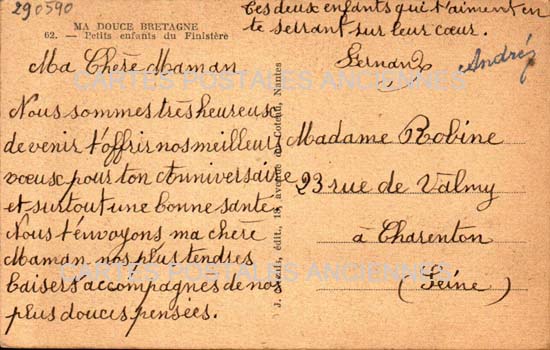 290590
MA DOUCE BRETAGNE
62. — Petits enfants du Finistère
Ma Chère Maman
Nous sommes très heureux
de venir t'offrir nos meilleurs
vœux pour ton Anniversaire
et surtout une bonne santé.
Nous t'envoyons ma chère
Maman nos plus tendres
baisers accompagnés de nos
plus douces pensées.
Ces deux enfants qui t'aiment en
te serrant sur leur cœur.
Fernand
André
Madame Robine
23 rue de Valmy
à Charenton
(Seine)
édit., 18, avenue du Coteau, Nantes
CARTES POSTALES ANCIENNES
CARTES POSTALES ANCIENNES